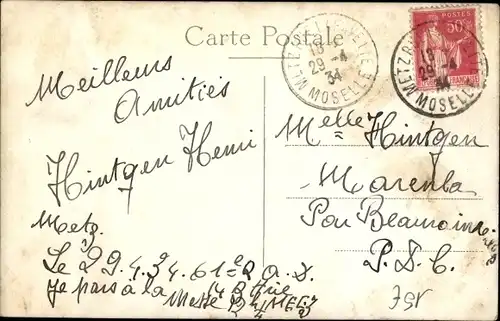 Carte Postale
Meilleurs
Amitiés
Hintgen Henri
Metz
Le 29.4.34. 61
je pars à la
Messe
METZ
18
29 -4
34
MOSELLE
POSTES
50c
METZ
18
29 -4
34
MOSELLE
Melle Hintgen
Marenla
Par Beaurain
P.d.C.